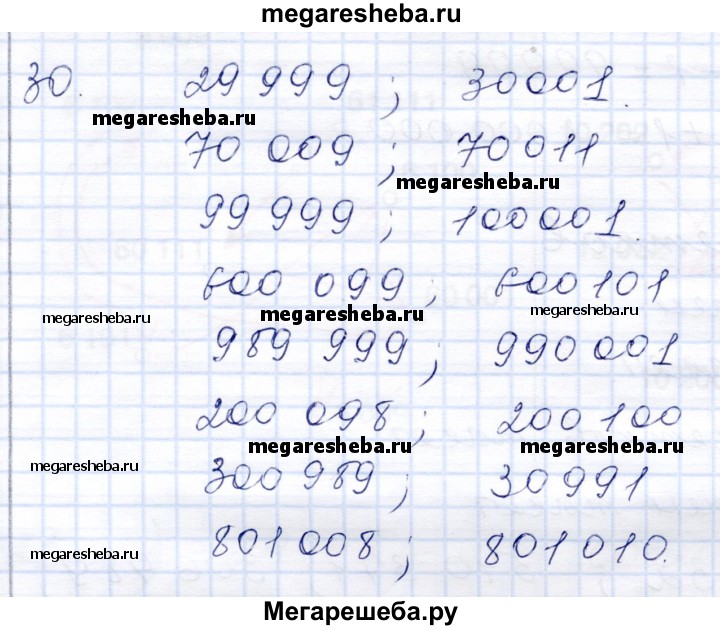 megaresheba.ru
30. 29 999 ; 30001.
megaresheba.ru
70 009 ; 70011
megaresheba.ru
99 999 ; 100001.
600 099 ; 600101
megaresheba.ru megaresheba.ru megaresheba.ru
989 999 ; 990001
200 098 ; 200100
megaresheba.ru megaresheba.ru
megaresheba.ru
300 989 ; 30991
801 008 ; 801010.
megaresheba.ru
Мегарешеба.ру